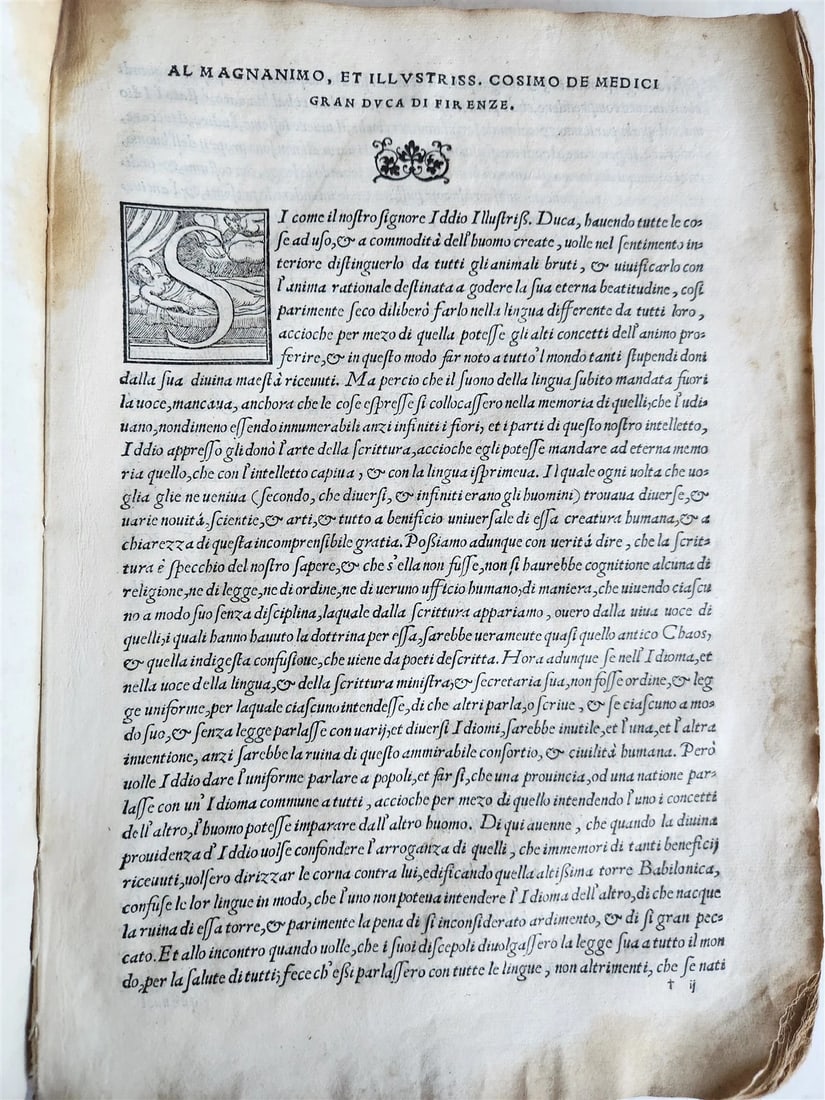 AL MAGNANIMO, ET ILLVSTRISS. COSIMO DE MEDICI
GRAN DVCA DI FIRENZE.
SI come il nostro signore Iddio Illustriß. Duca, hauendo tutte le co-
se ad uso, & a commodità dell'huomo create, uolle nel sentimento in-
teriore distinguerlo da tutti gli animali bruti, & uiuificarlo con
l'anima rationale destinata a godere la sua eterna beatitudine, cosi
parimente seco diliberò farlo nella lingua differente da tutti loro,
accioche per mezo di quella potesse gli alti concetti dell'animo pro-
ferire, & in questo modo far noto a tutto'l mondo tanti stupendi doni
dalla sua diuina maestà riceuuti. Ma percio che il suono della lingua subito mandata fuori
la uoce, mancaua, anchora che le cose espresse si collocassero nella memoria di quelli, che l'udi-
uano, nondimeno essendo innumerabili anzi infiniti i fiori, et i parti di questo nostro intelletto,
Iddio appresso gli donò l'arte della scrittura, accioche egli potesse mandare ad eterna memo
ria quello, che con l'intelletto capiua, & con la lingua isprimeua. Il quale ogni uolta che uo-
glia glie ne ueniua (secondo, che diuersi, & infiniti erano gli huomini) trouaua diuerse, &
uarie nouità, scientie, & arti, & tutto a benificio uniuersale di essa creatura humana, & a
chiarezza di questa incomprensibile gratia. Poßiamo adunque con uerità dire, che la scrit-
tura è specchio del nostro sapere, & che s'ella non fusse, non si haurebbe cognitione alcuna di
religione, ne di legge, ne di ordine, ne di ueruno ufficio humano, di maniera, che uiuendo ciascu
no a modo suo senza disciplina, laquale dalla scrittura appariamo, ouero dalla uiua uoce di
quelli, i quali hanno hauuto la dottrina per essa, sarebbe ueramente quasi quello antico Chaos,
& quella indigesta confusione, che uiene da poeti descritta. Hora adunque se nell'Idioma, et
nella uoce della lingua, & della scrittura ministra, & secretaria sua, non fosse ordine, & leg
ge uniforme, per laquale ciascuno intendesse, di che altri parla, o scriue, & se ciascuno a mo-
do suo, & senza legge parlasse con uarij, et diuersi Idiomi, sarebbe inutile, et l'una, et l'altra
inuentione, anzi sarebbe la ruina di questo ammirabile consortio, & ciuilità humana. Però
uolle Iddio dare l'uniforme parlare a popoli, et far sì, che una prouincia, od una natione par-
lasse con un'Idioma commune a tutti, accioche per mezo di quello intendendo l'uno i concetti
dell'altro, l'huomo potesse imparare dall'altro huomo. Di qui auenne, che quando la diuina
prouidenza d'Iddio uolse confondere l'arroganza di quelli, che immemori di tanti beneficij
riceuuti, uolsero dirizzar le corna contra lui, edificando quella altißima torre Babilonica,
confuse le lor lingue in modo, che l'uno non poteua intendere l'Idioma dell'altro, di che nacque
la ruina di essa torre, & parimente la pena di sì inconsiderato ardimento, & di sì gran pec-
cato. Et allo incontro quando uolle, che i suoi discepoli diuolgassero la legge sua a tutto il mon
do, per la salute di tutti, fece ch'eßi parlassero con tutte le lingue, non altrimenti, che se nati
† ij